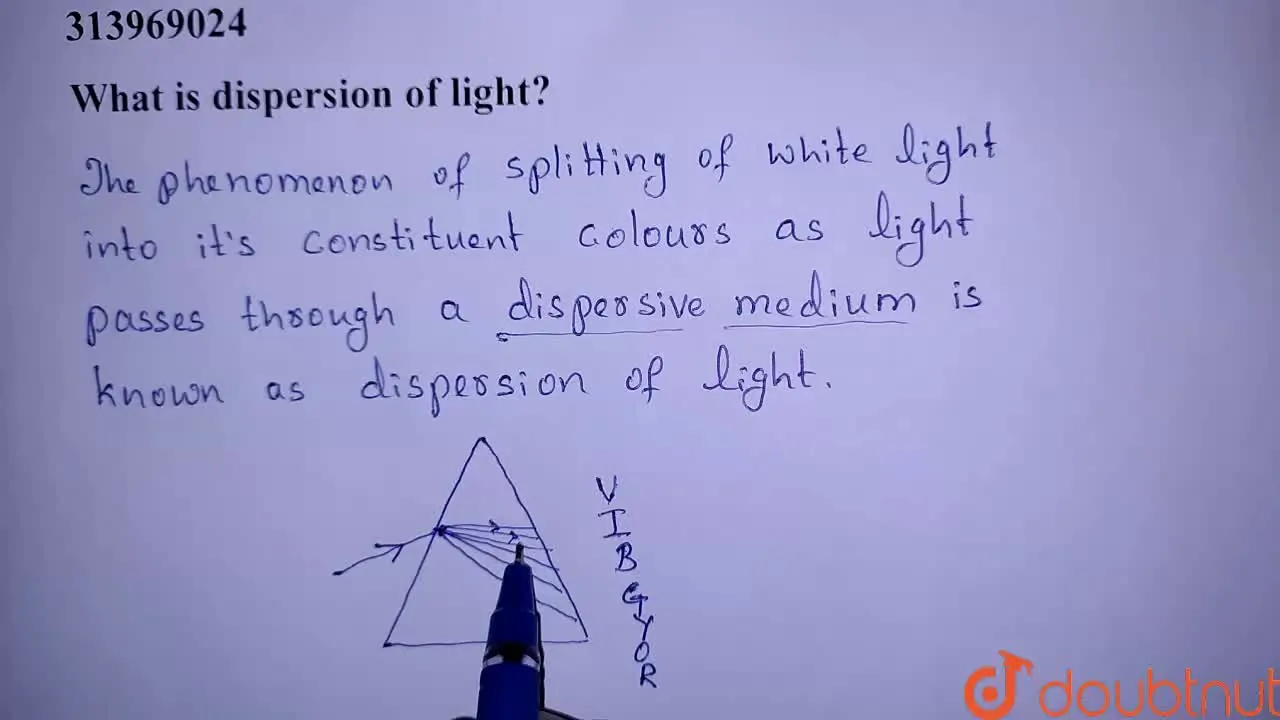 313969024
What is dispersion of light?
The phenomenon of splitting of white light
into it's constituent colours as light
passes through a dispersive medium is
known as dispersion of light.
V
I
B
G
Y
O
R
doubtnut